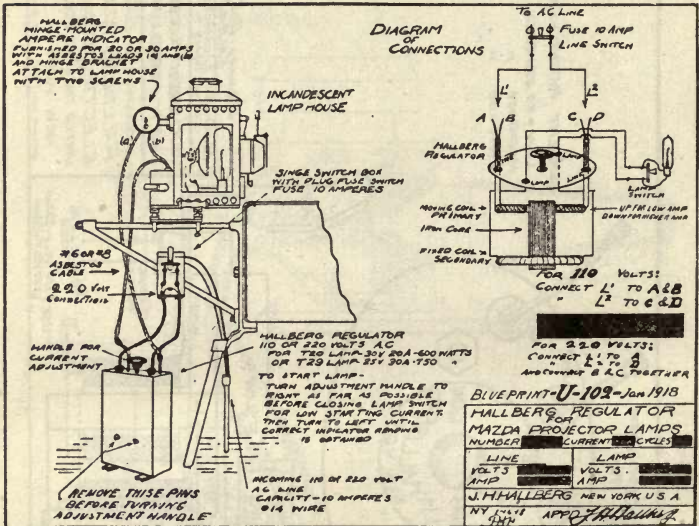 HALLBERG
HINGE-MOUNTED
AMPERE INDICATOR
FURNISHED FOR 20 OR 30 AMPS
WITH ASBESTOS LEADS (a) AND (b)
AND HINGE BRACKET
ATTACH TO LAMP HOUSE
WITH TWO SCREWS
(a)
(b)
INCANDESCENT
LAMP HOUSE
SINGLE SWITCH BOX
WITH PLUG FUSE SWITCH
FUSE 10 AMPERES
#6 OR #8
ASBESTOS
CABLE
220 VOLT
CONNECTION
HANDLE FOR
CURRENT
ADJUSTMENT
HALLBERG REGULATOR
110 OR 220 VOLTS AC
FOR T20 LAMP-30V 20A-600 WATTS
OR T29 LAMP-25V 30A-750 "
TO START LAMP-
TURN ADJUSTMENT HANDLE TO
RIGHT AS FAR AS POSSIBLE
BEFORE CLOSING LAMP SWITCH
FOR LOW STARTING CURRENT.
THEN TURN TO LEFT UNTIL
CORRECT INDICATOR READING
IS OBTAINED
REMOVE THESE PINS
BEFORE TURNING
ADJUSTMENT HANDLE
INCOMING 110 OR 220 VOLT
AC LINE
CAPACITY-10 AMPERES
#14 WIRE
DIAGRAM
OF
CONNECTIONS
TO AC LINE
FUSE 10 AMP
LINE SWITCH
L1
L2
A B
C D
HALLBERG
REGULATOR
LINE
LINE
LAMP
LAMP
LAMP
SWITCH
MOVING COIL
PRIMARY
UP FOR LOW AMP
DOWN FOR HIGHER AMP
IRON CORE
FIXED COIL
SECONDARY
FOR 110 VOLTS:
CONNECT L1 TO A & B
" L2 TO C & D
FOR 220 VOLTS:
CONNECT L1 TO A
" L2 TO D
AND CONNECT B & C TOGETHER
BLUEPRINT-U-102-Jan 1918
HALLBERG REGULATOR
FOR
MAZDA PROJECTOR LAMPS
NUMBER CURRENT CYCLES
LINE LAMP
VOLTS VOLTS.
AMP AMP
J.H.HALLBERG NEW YORK U S A
NY
APPD J.H.Hallberg